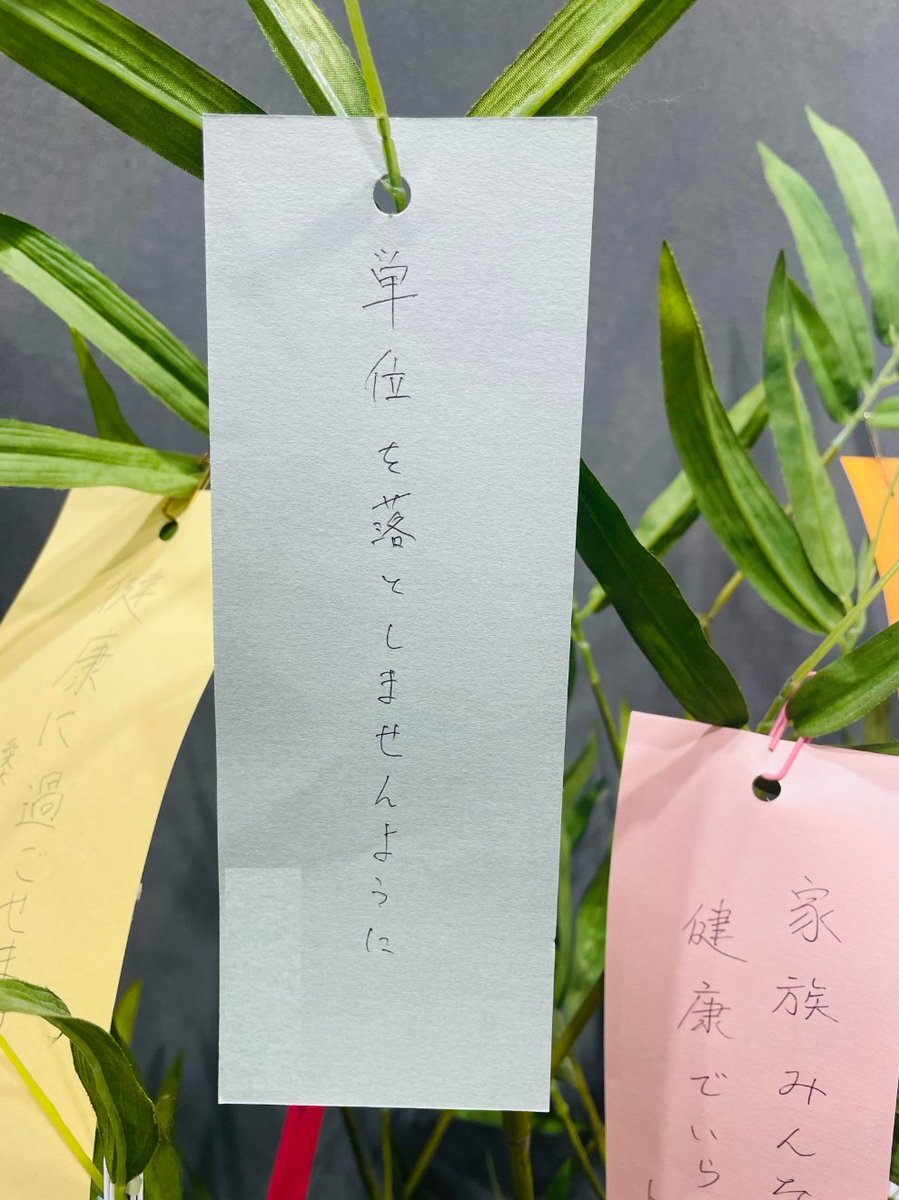 単位を落としませんように
家族みんな
健康でいら
健康に過ごせま